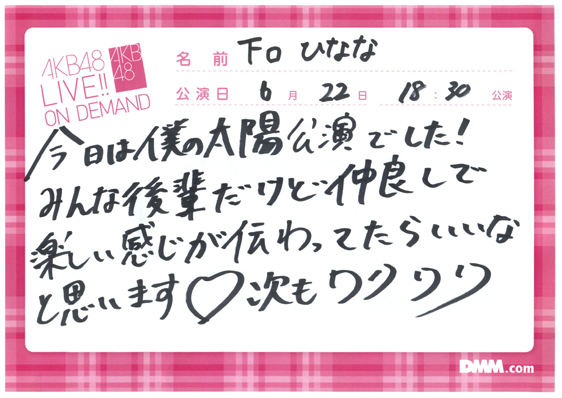 AKB48
LIVE!!
ON DEMAND
AKB
48
名前 下口ひなな
公演日 6月22日 18:30 公演
今日は僕の太陽公演でした!
みんな後輩だけど仲良しで
楽しい感じが伝わってたらいいな
と思います♡次もワクワク
DMM.com